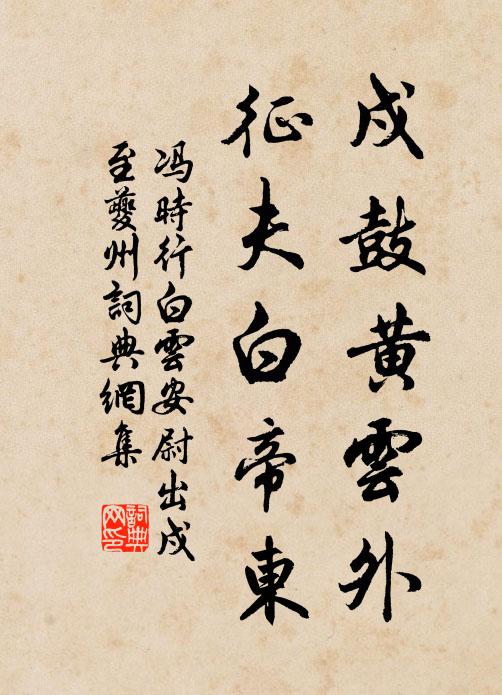 戍鼓黃雲外
征夫白帝東
冯時行白雲安尉出戍
至夔州詞典網集
詞典网印